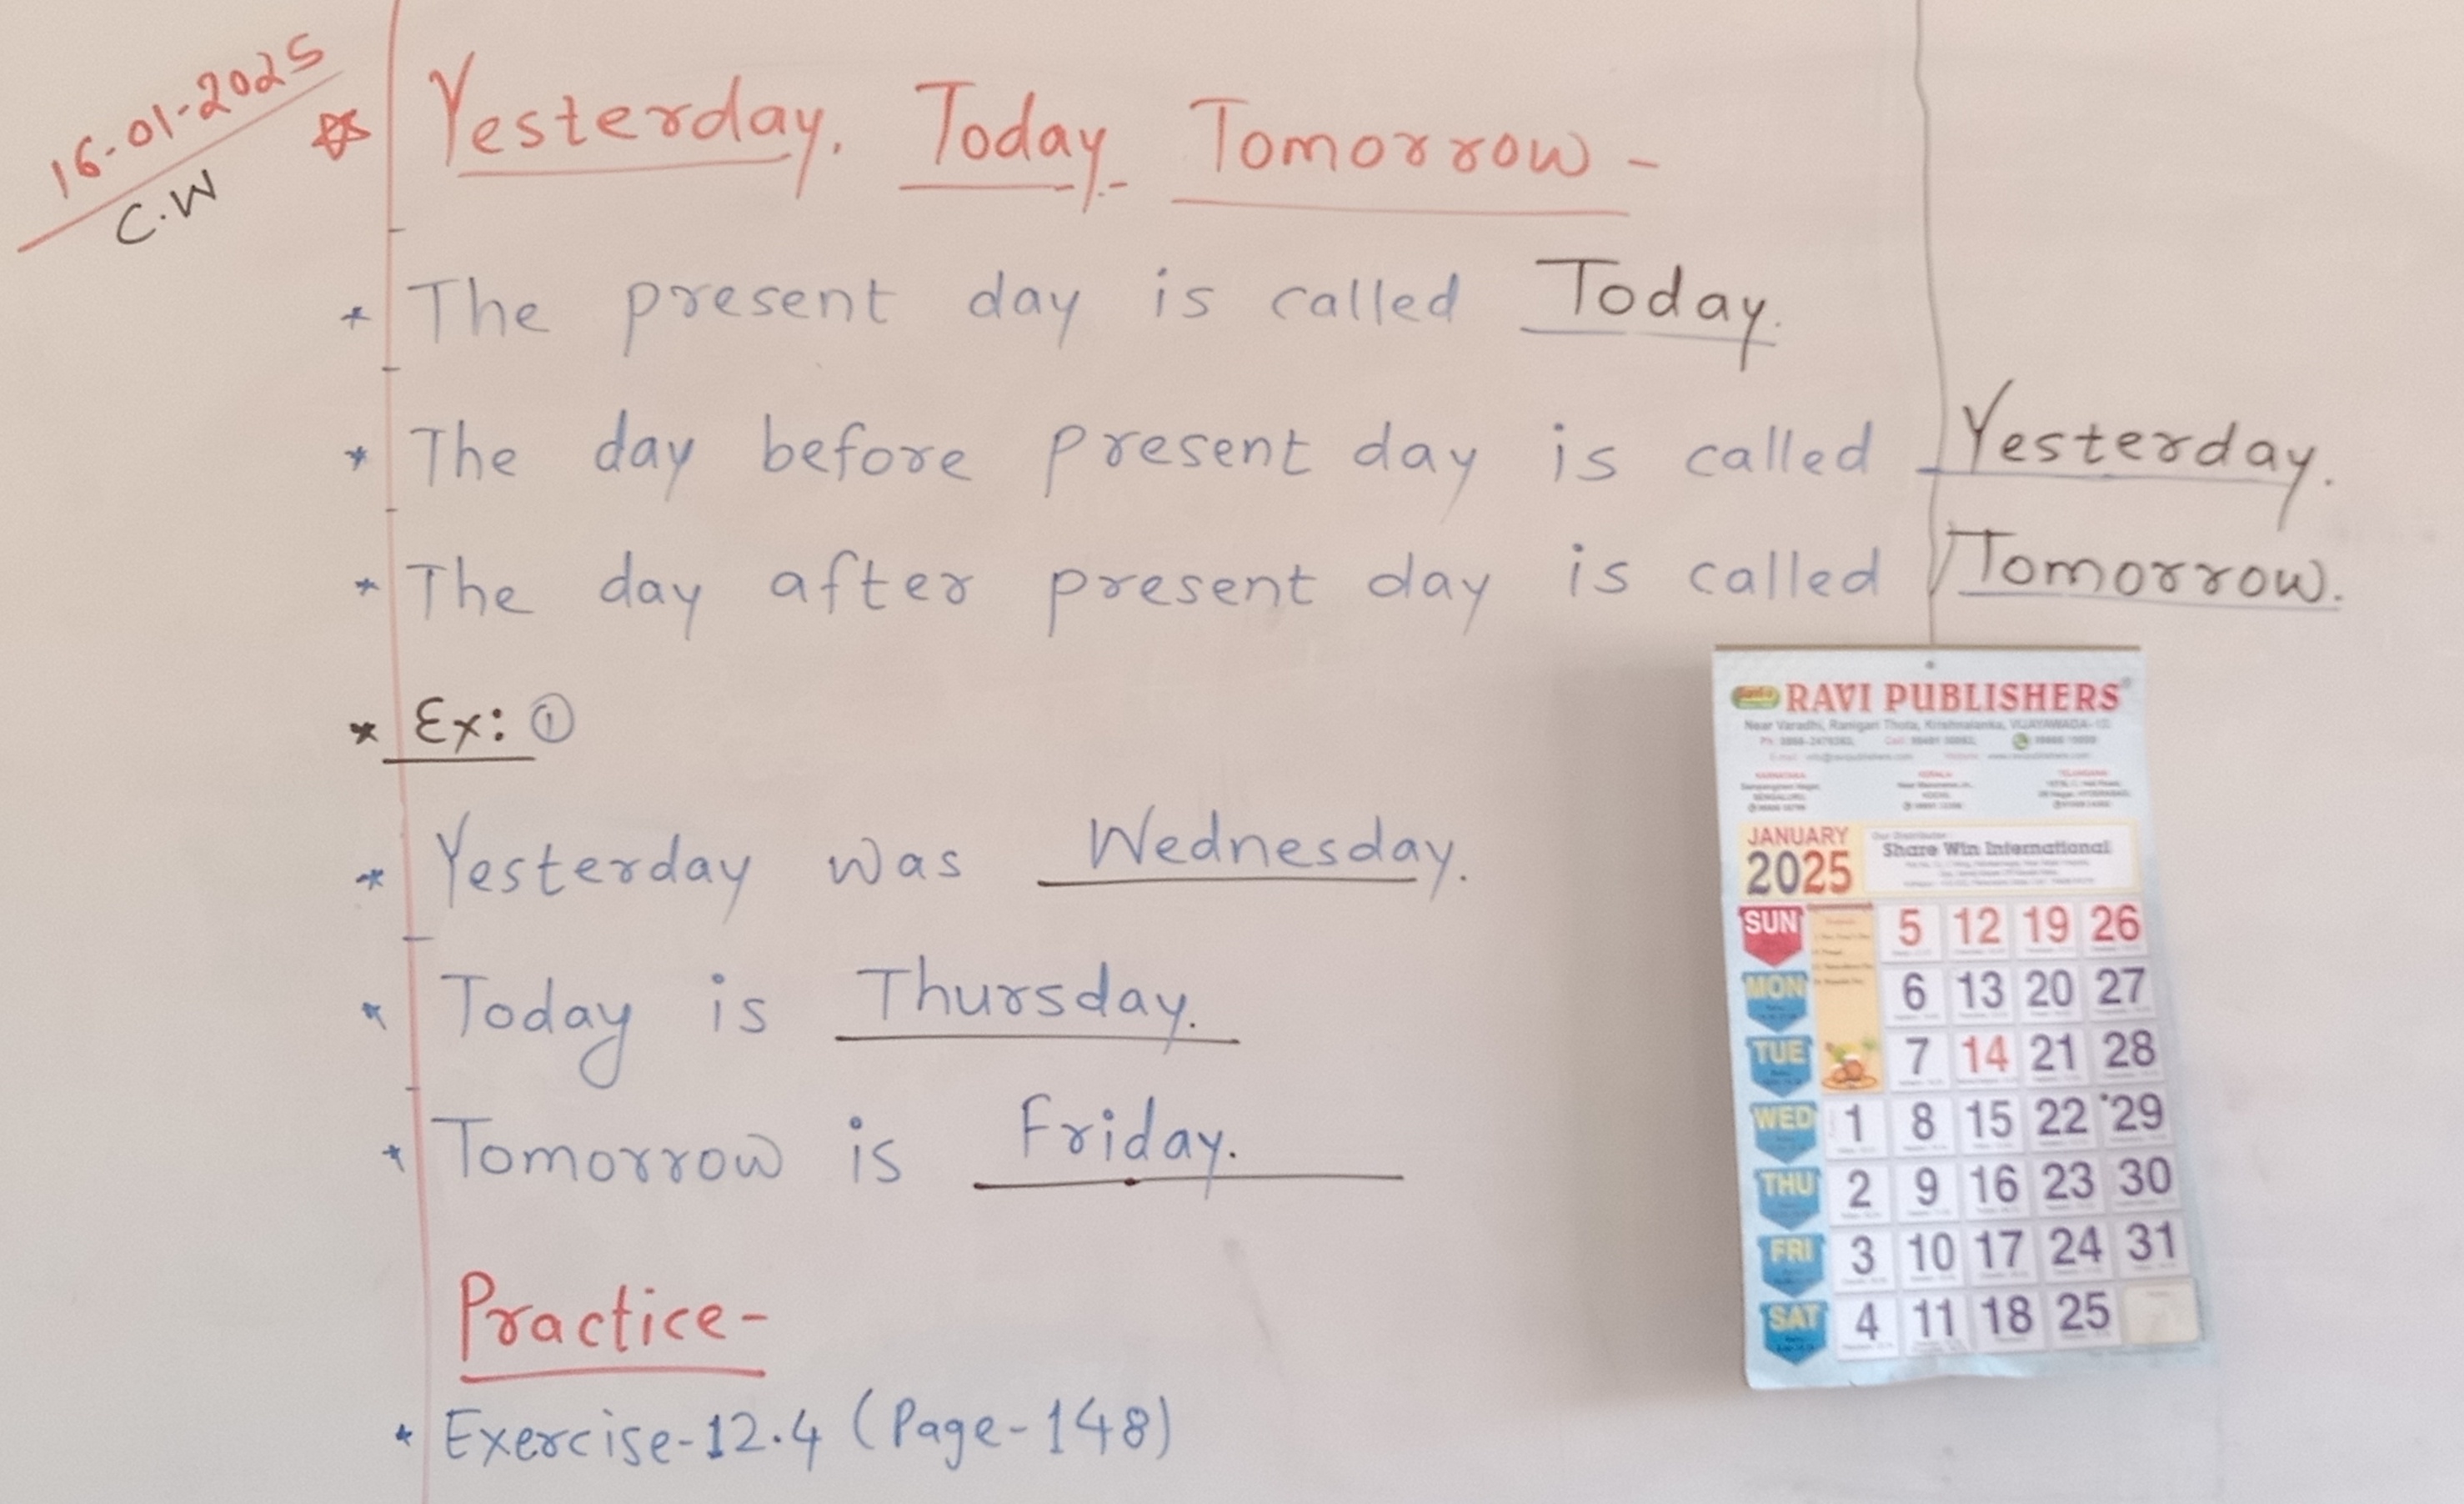 16-01-2025
C.W
Yesterday. Today. Tomorrow -
* The present day is called Today.
* The day before present day is called Yesterday.
* The day after present day is called Tomorrow.
* Ex: ①
* Yesterday was Wednesday.
* Today is Thursday.
* Tomorrow is Friday.
Practice-
* Exercise-12.4 (Page-148)
RAVI PUBLISHERS
Near Varadhi, Ranigari Thota, Krishnalanka, VIJAYAWADA
JANUARY
2025
Our Distributor:
Share Win International
SUN 5 12 19 26
MON 6 13 20 27
TUE 7 14 21 28
WED 1 8 15 22 29
THU 2 9 16 23 30
FRI 3 10 17 24 31
SAT 4 11 18 25